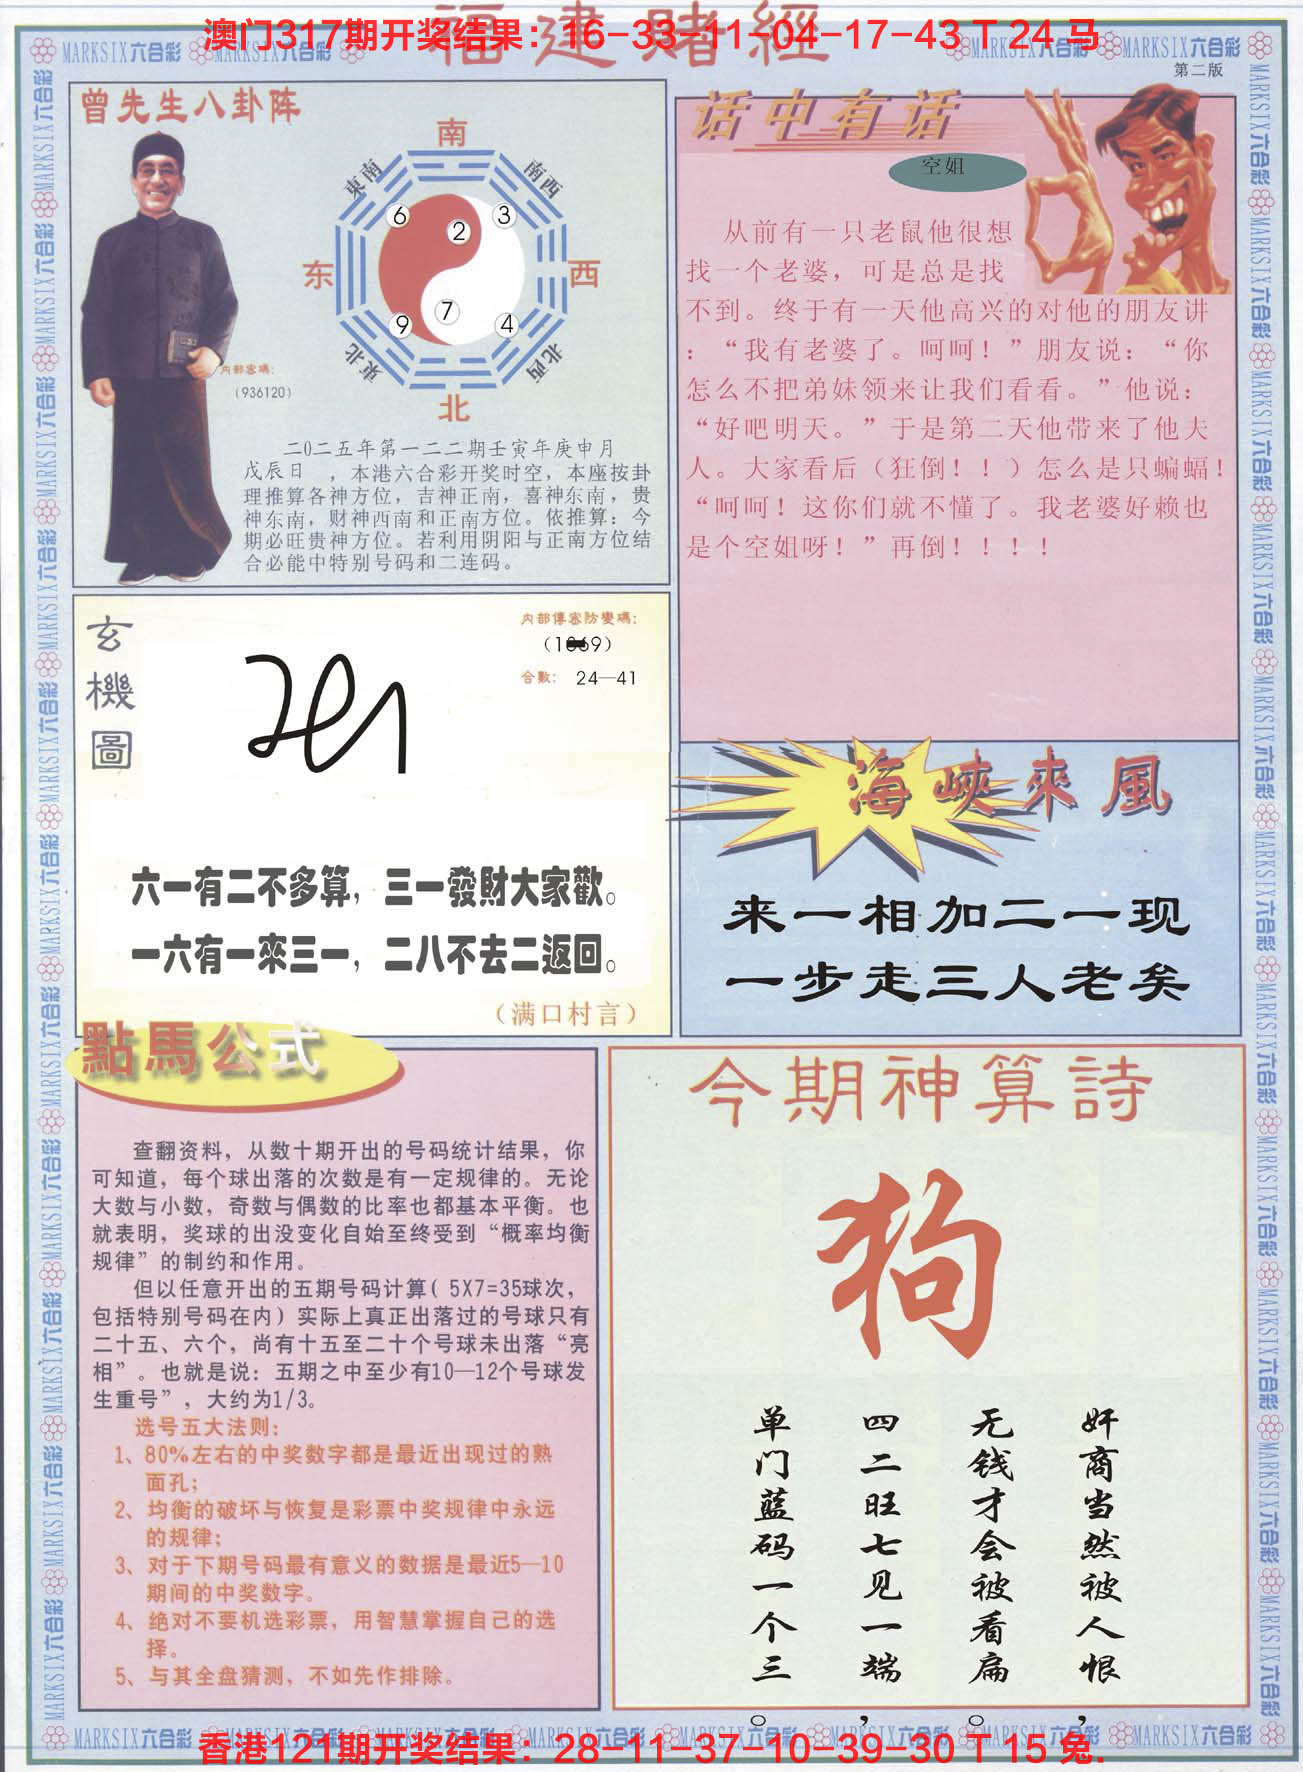 澳门317期开奖结果：16-33-11-04-17-43 T 24 马
福建赌經
MARKSIX六合彩
第二版
曾先生八卦阵
南
東南
南西
6
2
3
东
西
9
7
4
東北
北西
北
内部密碼：
（936120）
二0二五年第一二二期壬寅年庚申月
戊辰日 ，本港六合彩开奖时空，本座按卦
理推算各神方位，吉神正南，喜神东南，贵
神东南，财神西南和正南方位。依推算：今
期必旺贵神方位。若利用阴阳与正南方位结
合必能中特别号码和二连码。
话中有话
空姐
从前有一只老鼠他很想
找一个老婆，可是总是找
不到。终于有一天他高兴的对他的朋友讲
：“我有老婆了。呵呵！”朋友说：“你
怎么不把弟妹领来让我们看看。”他说：
“好吧明天。”于是第二天他带来了他夫
人。大家看后（狂倒！！）怎么是只蝙蝠！
“呵呵！这你们就不懂了。我老婆好赖也
是个空姐呀！”再倒！！！！
玄機圖
内部傳密防變碼：
合數： 24—41
六一有二不多算，三一發財大家歡。
一六有一來三一，二八不去二返回。
（满口村言）
海峽來風
来一相加二一现
一步走三人老矣
點馬公式
查翻资料，从数十期开出的号码统计结果，你
可知道，每个球出落的次数是有一定规律的。无论
大数与小数，奇数与偶数的比率也都基本平衡。也
就表明，奖球的出没变化自始至终受到“概率均衡
规律”的制约和作用。
但以任意开出的五期号码计算（5X7=35球次，
包括特别号码在内）实际上真正出落过的号球只有
二十五、六个，尚有十五至二十个号球未出落“亮
相”。也就是说：五期之中至少有10—12个号球发
生重号”，大约为1/3。
选号五大法则：
1、80%左右的中奖数字都是最近出现过的熟
面孔；
2、均衡的破坏与恢复是彩票中奖规律中永远
的规律；
3、对于下期号码最有意义的数据是最近5—10
期间的中奖数字。
4、绝对不要机选彩票，用智慧掌握自己的选
择。
5、与其全盘猜测，不如先作排除。
今期神算詩
狗
奸商当然被人恨，
无钱才会被看扁。
四二旺七见一端，
单门蓝码一个三。
香港121期开奖结果：28-11-37-10-39-30 T 15 兔.